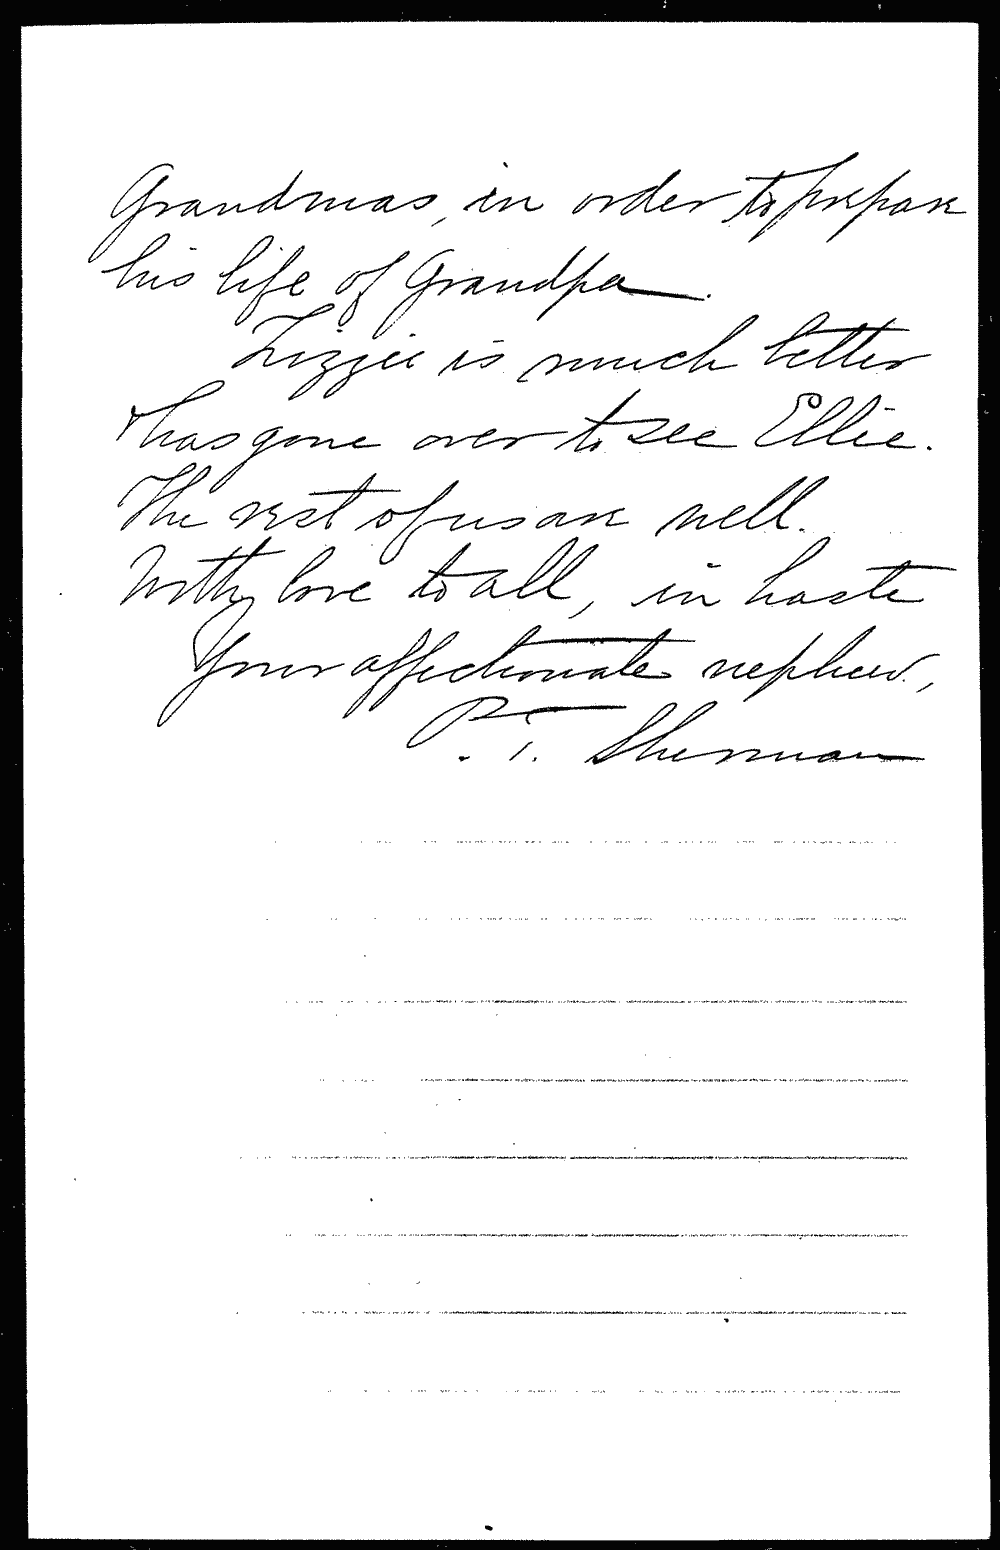 Grandmas, in order to prepare
his life of Grandpa.
Lizzie is much better
& has gone over to see Ellie.
The rest of us are well.
With love to all, in haste
Your affectionate nephew,
P. T. Sherman